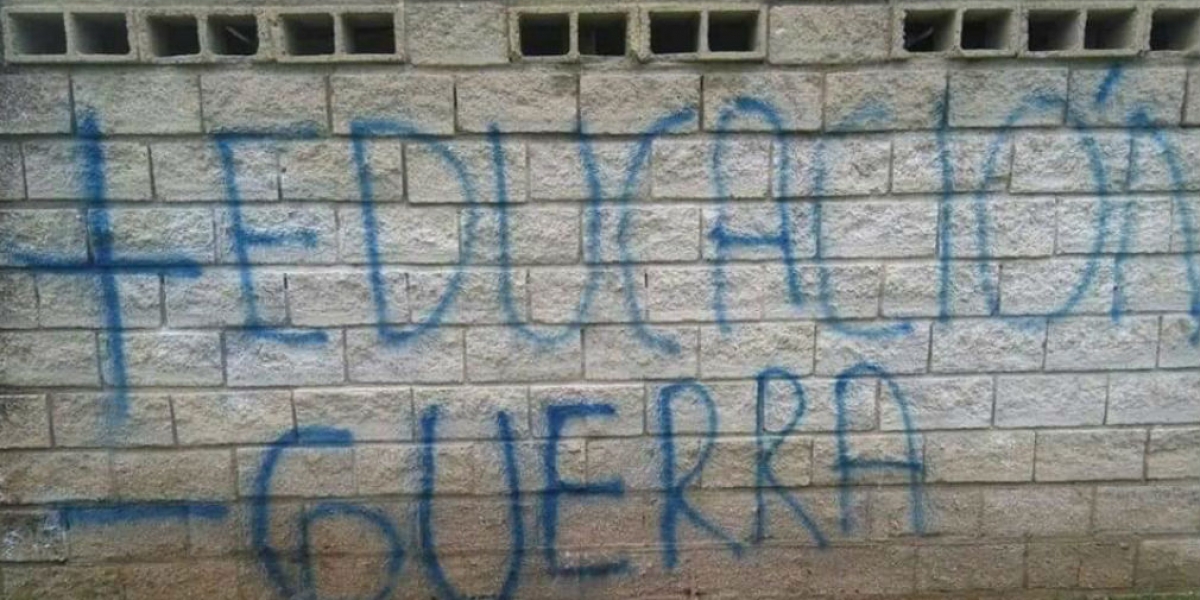 + EDUCACIÓN
- GUERRA